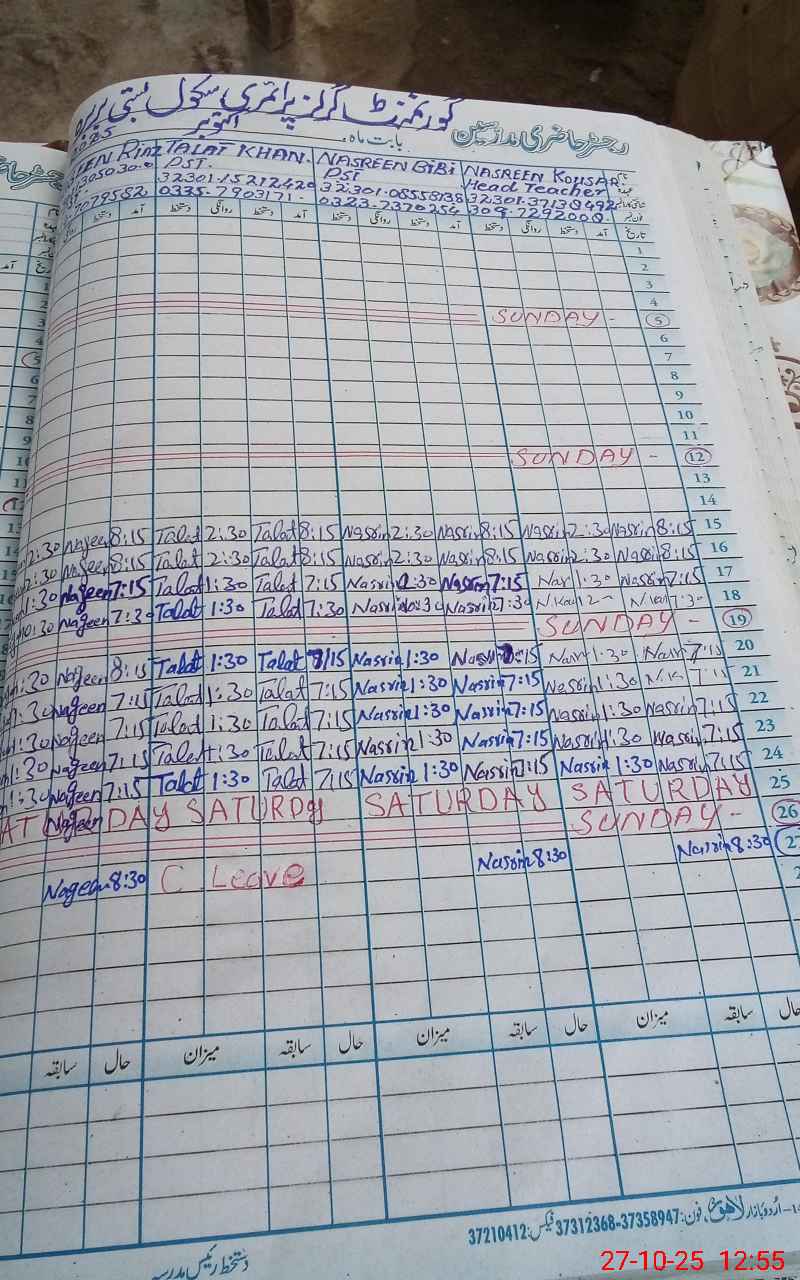 گورنمنٹ گرلز پرائمری سکول بستی
رجسٹر حاضری مدرسین
بابت ماہ اکتوبر
NASREEN KOUSAR
Head Teacher
309.7292000
NASREEN BIBI
PST
32301.08558138
0323.7370254
TALAT KHAN.
PST.
32301.15212420
0335.7903171.
تاریخ آمد دستخط روانگی دستخط آمد دستخط روانگی دستخط آمد دستخط روانگی دستخط آمد دستخط
1
2
3
4
SUNDAY - 5
6
7
8
9
10
11
SUNDAY - 12
13
14
2:30 Nageen 8:15 Talat 2:30 Talat 8:15 Nasrin 2:30 Nasrin 8:15 Nasrin 2:30 Nasrin 8:15 15
2:30 Nageen 8:15 Talat 2:30 Talat 8:15 Nasrin 2:30 Nasrin 8:15 Nasrin 2:30 Nasrin 8:15 16
1:30 Nageen 7:15 Talat 1:30 Talat 7:15 Nasrin 2:30 Nasrin 7:15 1:30 Nasrin 7:15 17
10:30 Nageen 7:30 Talat 1:30 Talat 7:30 Nasrin Nasrin 7:30 7:30 18
SUNDAY - 19
1:30 Nageen 8:15 Talat 1:30 Talat 7:15 Nasrin 1:30 Nasrin 1:30 Nasrin 7:15 20
1:30 Nageen 7:15 Talat 1:30 Talat 7:15 Nasrin 1:30 Nasrin 7:15 Nasrin 1:30 7:15 21
1:30 Nageen 7:15 Talat 1:30 Talat 7:15 Nasrin 1:30 Nasrin 7:15 Nasrin 1:30 Nasrin 7:15 22
1:30 Nageen 7:15 Talat 1:30 Talat 7:15 Nasrin 1:30 Nasrin 7:15 Nasrin 1:30 Nasrin 7:15 23
1:30 Nageen 7:15 Talat 1:30 Talat 7:15 Nasrin 1:30 Nasrin 7:15 Nasrin 1:30 Nasrin 7:15 24
DAY SATURDY SATURDAY SATURDAY 25
SUNDAY - 26
Nageen 8:30 C Leave Nasrin 8:30 Nasrin 8:30
حال سابقہ میزان حال سابقہ میزان حال سابقہ میزان حال سابقہ
اُردو بازار لاہور، فون: 37358947-37312368 فیکس: 37210412
دستخط رئیس مدرسہ
27-10-25 12:55